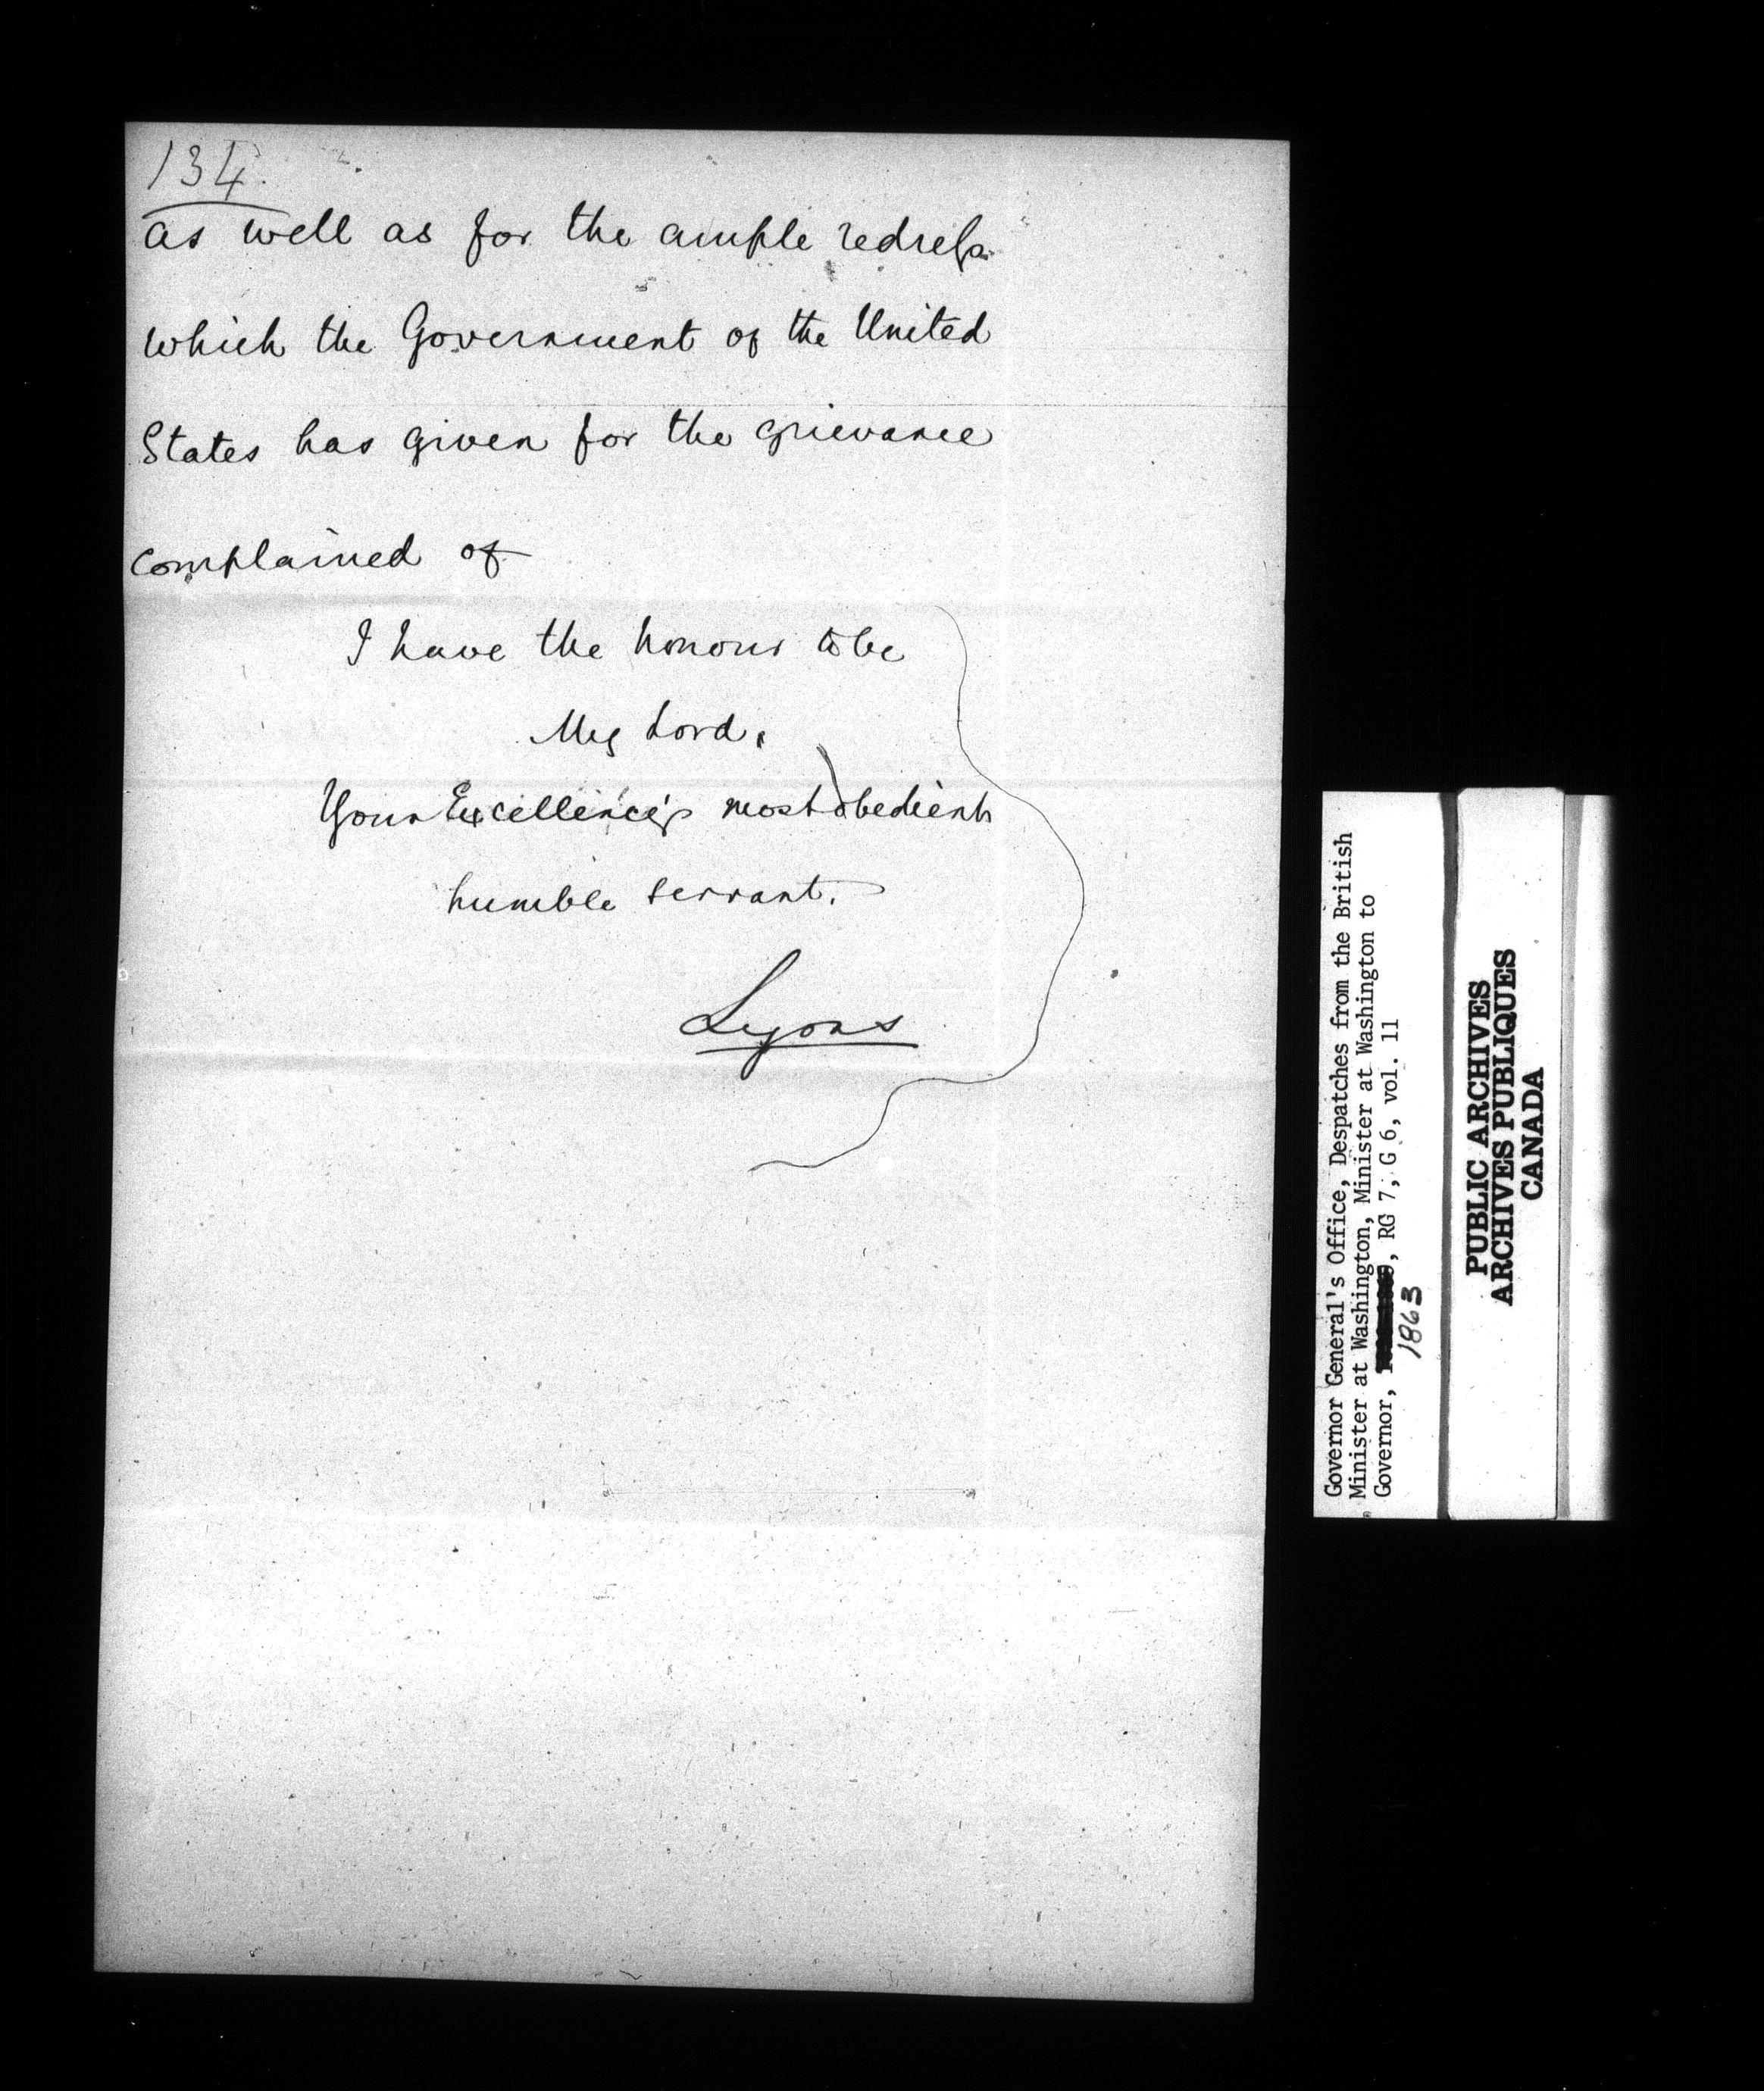 134.
as well as for the ample redress
which the Government of the United
States has given for the grievance
complained of
I have the honour to be
My Lord,
Your Excellency's most obedient
humble servant.
Lyons
Governor General's Office, Despatches from the British
Minister at Washington, Minister at Washington to
Governor, , RG 7, G 6, vol. 11
1863
PUBLIC ARCHIVES
ARCHIVES PUBLIQUES
CANADA